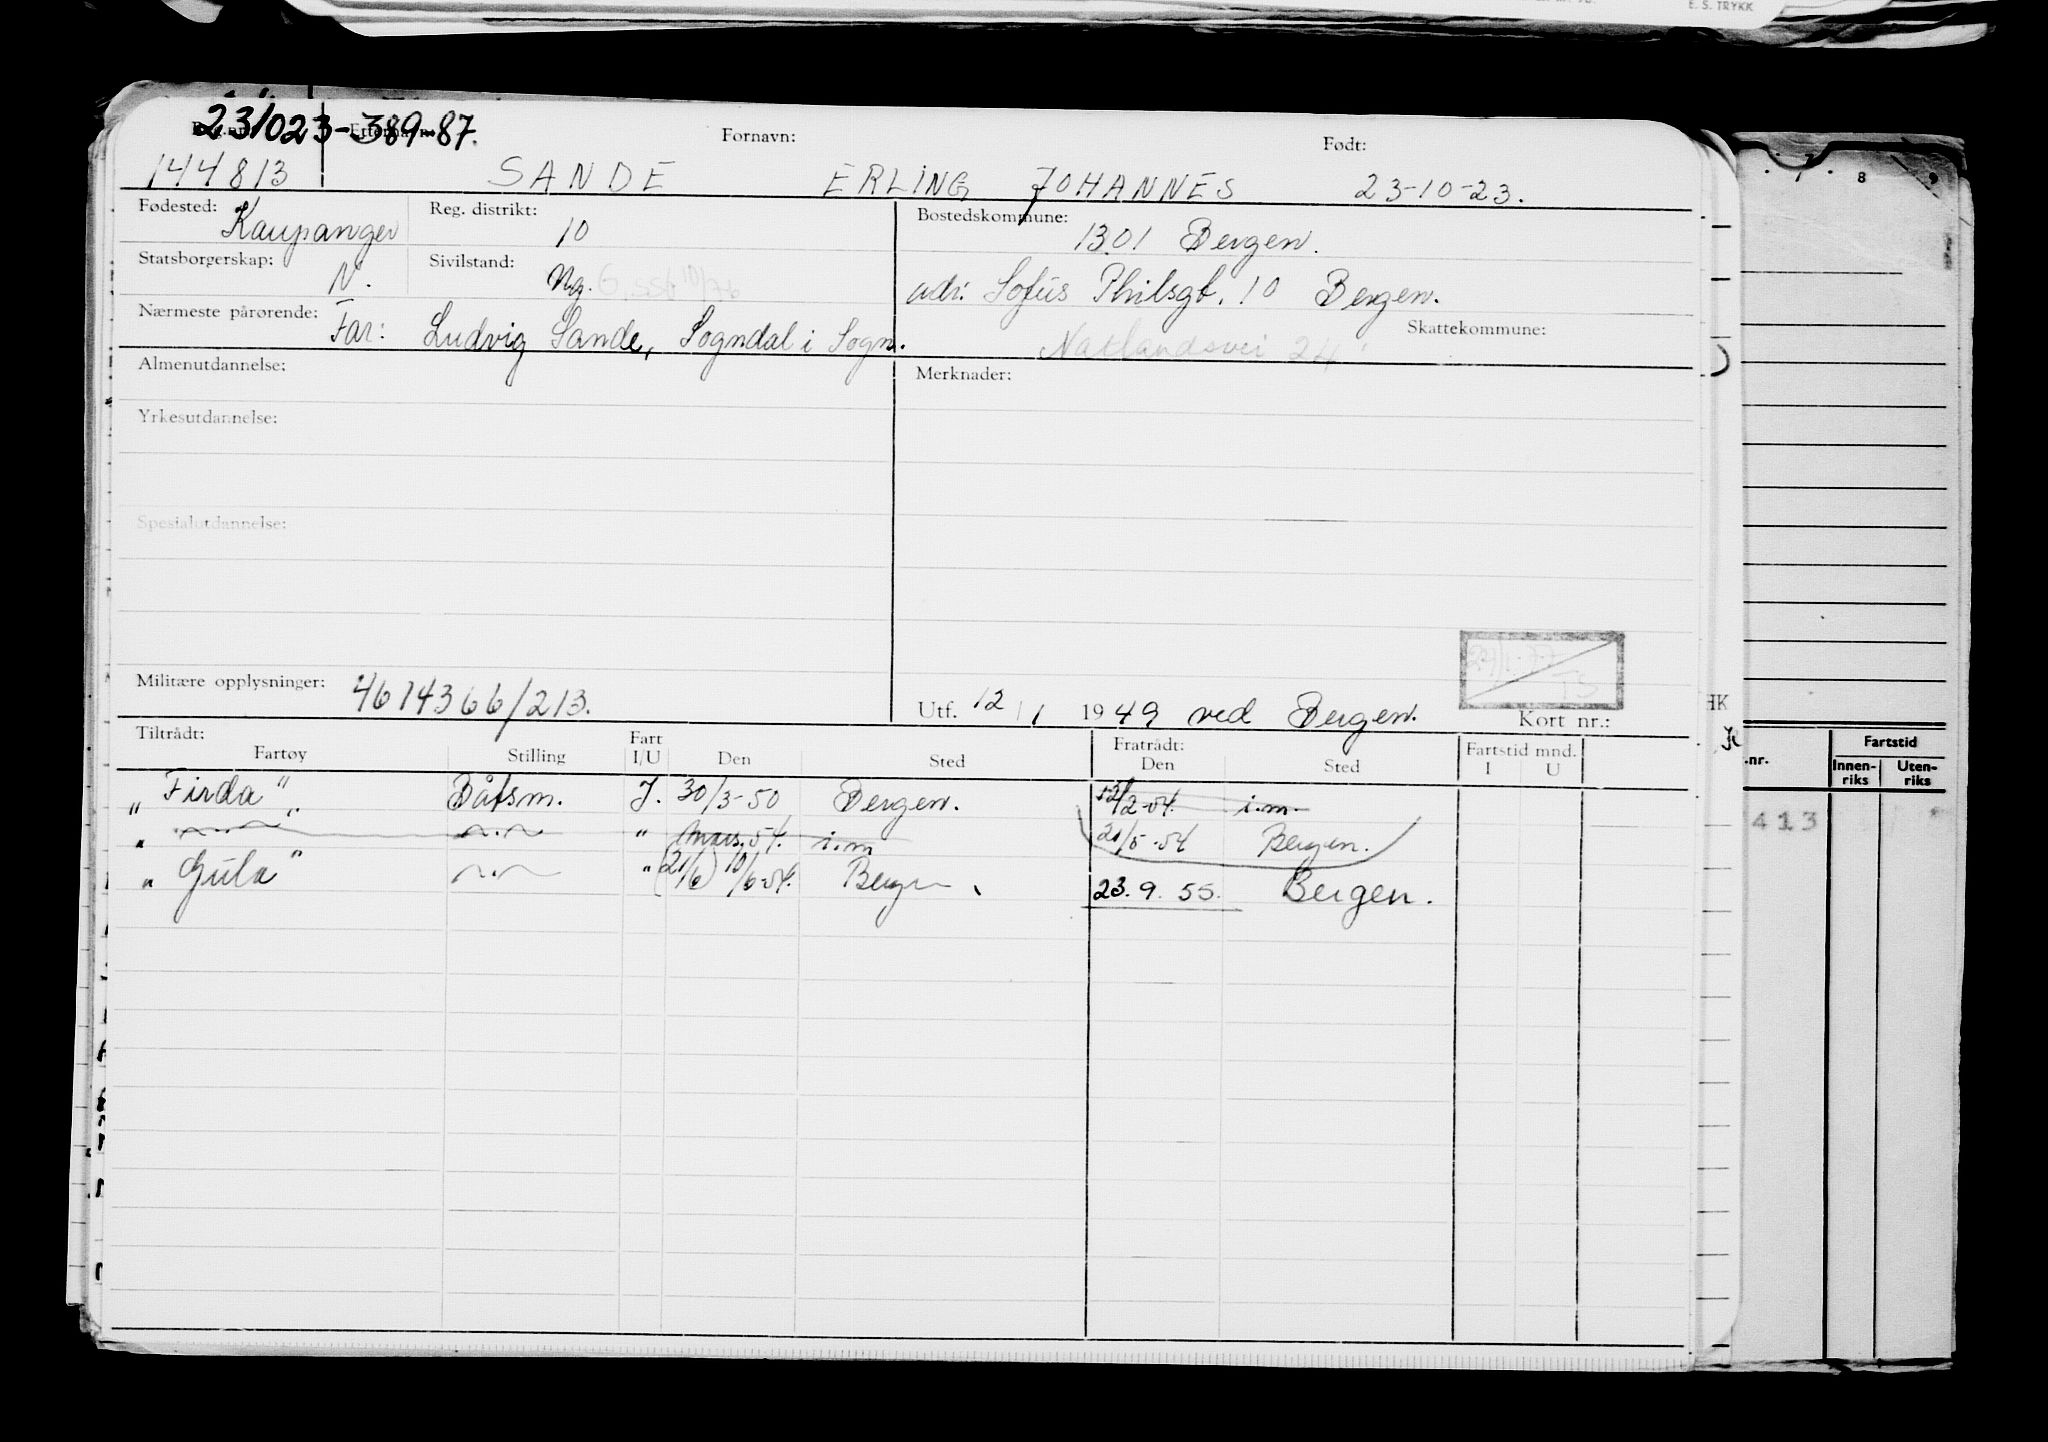 E. S. TRYKK
231023-389-87.
Fornavn: Født:
144813 SANDE ERLING JOHANNES 23-10-23.
Fødested: Kaupanger Reg. distrikt: 10 Bostedskommune: 1301 Bergen.
Statsborgerskap: N. Sivilstand: Ug. adr. Sofus Philsgt. 10 Bergen.
Nærmeste pårørende: Far: Ludvig Sande, Sogndal i Sogn. Skattekommune:
Natlandsvei 24
Almenutdannelse: Merknader:
Yrkesutdannelse:
Spesialutdannelse:
TS
Militære opplysninger: 4614366/213. Utf. 12/1 1949 ved Bergen. Kort nr.:
Tiltrådt: Fart Fratrådt: Fartstid mnd.
Fartøy Stilling I/U Den Sted Den Sted I U
"Firda" Båtsm. I. 30/3-50 Bergen. 12/2-54. i.m.
" " mars. 54. i.m 21/5-54 Bergen.
"Gula" " (21/6) 10/6-54. Bergen. 23.9.55. Bergen.
7 8 9
HK
.nr. Fartstid
Innen-riks Uten-riks
413